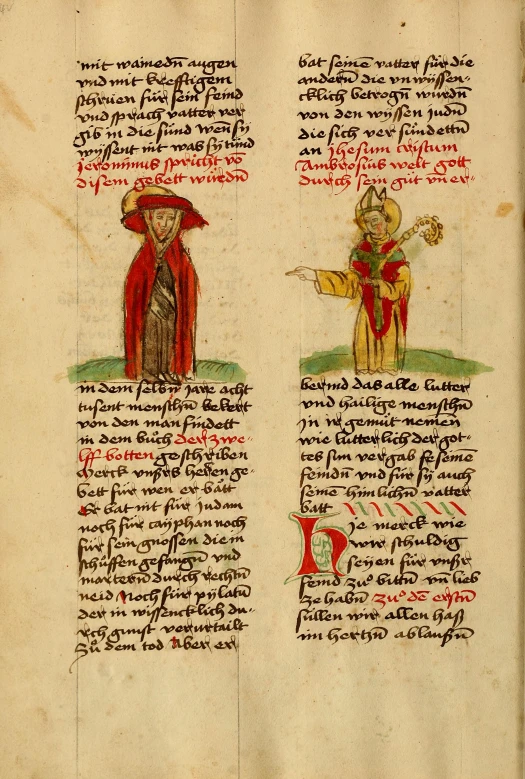 mit wainedn̄ augen
vnd mit krefftigem
schrien für sein feind
vnd sprach vatter ver
gib in die sünd wen sÿ
wÿssent nit was sÿ tünd
Jeronimus spricht vō
disem gebett würdn̄
in dem selbn̄ jare acht
tusent menschn̄ bekert
von den man findett
in dem bůch der zwe-
lff botten geschriben
Merck vnsrs heren ge-
bett für wen er bått
Er bat nit für judam
noch für caÿphan noch
für sein gnossen die in
schüffen gefangn̄ vnd
martern̄ durch rechtn̄
neid Noch für pÿlatū
der in wissencklich du-
rch gunst verurtailt
zů dem tod Aber er
bat seinē vatter für die
andern̄ die vnwÿssen-
cklich betrogn̄ wurdn̄
von den wÿssen judn̄
die sich versündettn̄
an Jhesum cristum
Ambrosius welt gott
durch sein güt vn̄ er-
bermd das alle lutter
vnd hailige menschn̄
in ir gemüt nemen
wie lutterlich der got-
tes sun vergab sē seinē
feindn̄ vnd für sÿ auch
seinē himlichn̄ vatter
batt
Hie merck wie
wir schuldig
seÿen für vnsr
feind zů bittn̄ vn̄ lieb
ze habn̄ zů dē erstn̄
süllen wir allen hass
im hertzn̄ ablaussn̄